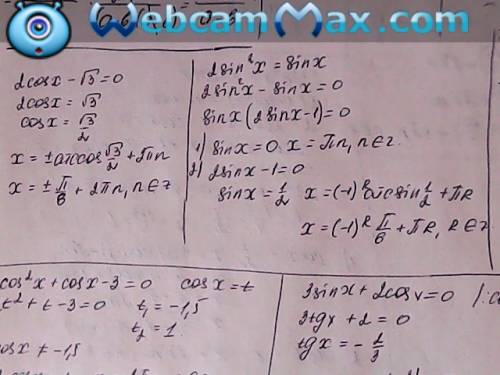 WebcamMax.com
2cosx - √3 = 0
2cosx = √3
cosx = √3/2
x = ± arccos √3/2 + 2πn
x = ± π/6 + 2πn, n ∈ z
2sin²x = sinx
2sin²x - sinx = 0
sinx(2sinx-1) = 0
1) sinx = 0. x = πn, n ∈ z.
2) 2sinx - 1 = 0
sinx = 1/2 x = (-1)^k arcsin 1/2 + πk
x = (-1)^k π/6 + πk, k ∈ z
cos²x + cosx - 3 = 0 cosx = t
t² + t - 3 = 0 t₁ = -1,5
t₂ = 1
cosx ≠ -1,5
3sinx + 2cosx = 0
3tgx + 2 = 0
tgx = - 2/3